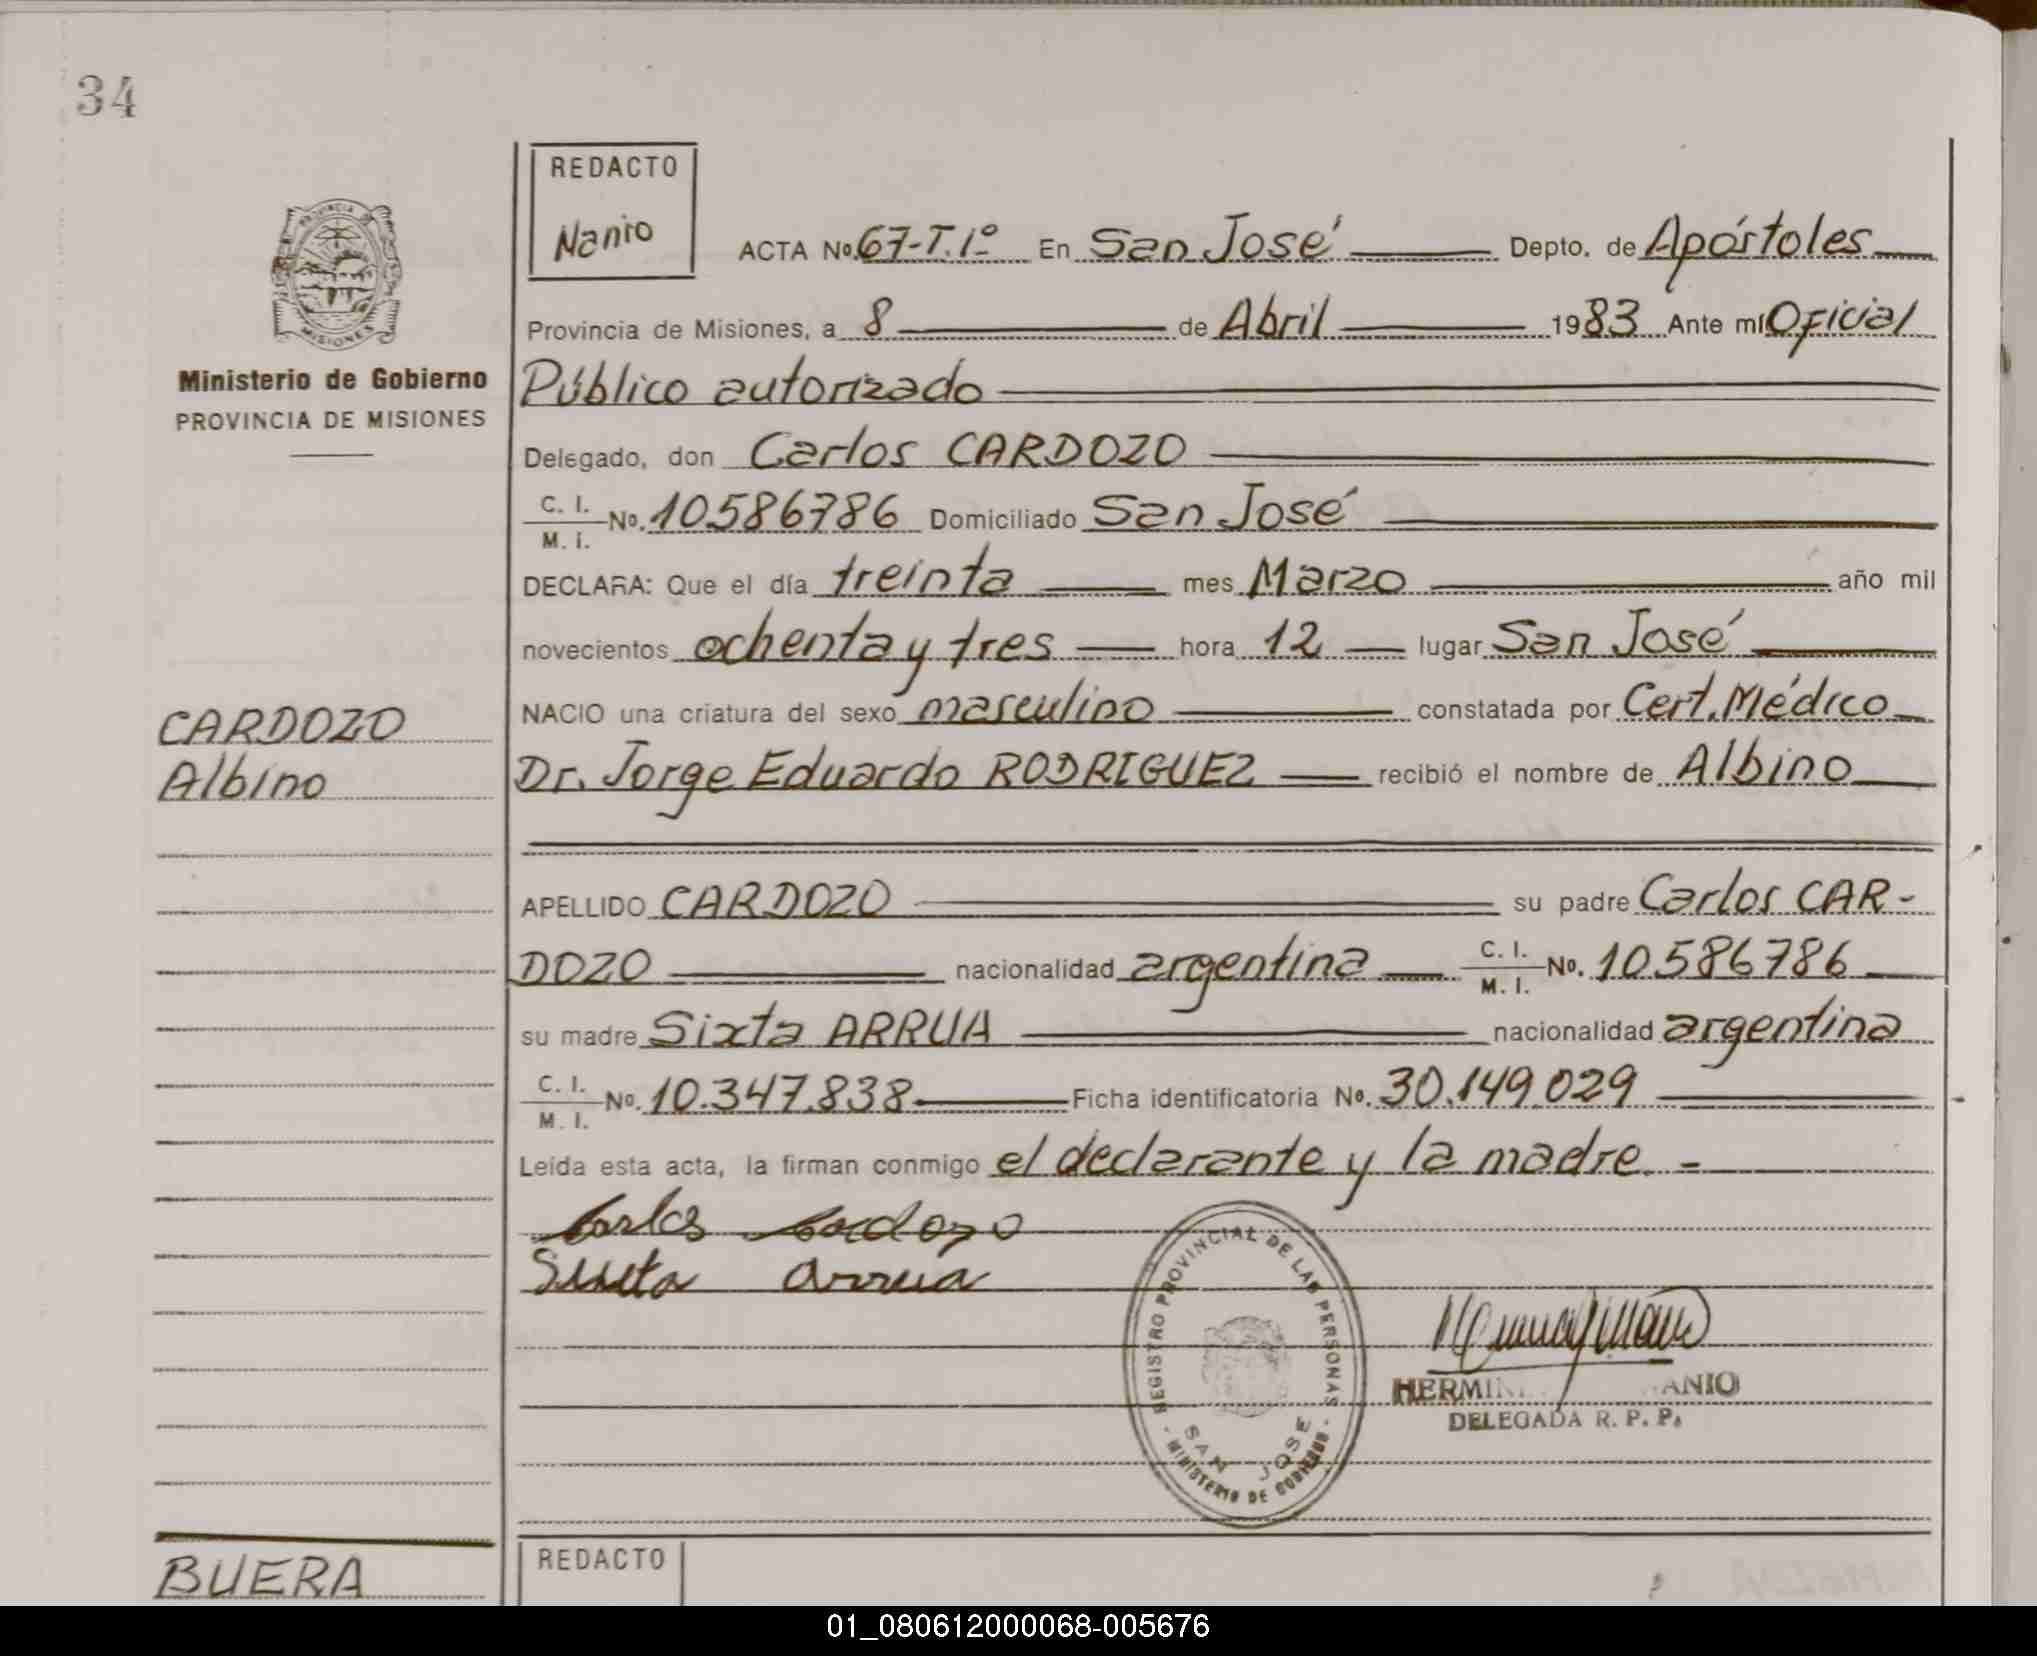 34
REDACTO
Nanio
ACTA No. 67-T.1º En San José Depto. de Apóstoles
Provincia de Misiones, a 8 de Abril 1983 Ante mí Oficial
Público autorizado
Delegado, don Carlos CARDOZO
C. I. / M. I. No. 10586786 Domiciliado San José
DECLARA: Que el día treinta mes Marzo año mil
novecientos ochenta y tres hora 12 lugar San José
NACIO una criatura del sexo masculino constatada por Cert. Médico
Dr. Jorge Eduardo RODRIGUEZ recibió el nombre de Albino
APELLIDO CARDOZO su padre Carlos CAR-
DOZO nacionalidad argentina C. I. / M. I. No. 10.586786
su madre Sixta ARRUA nacionalidad argentina
C. I. / M. I. No. 10.347.838 Ficha identificatoria No. 30.149.029
Leída esta acta, la firman conmigo el declarante y la madre. -
Carlos Cardozo
Sixta Arrua
REGISTRO PROVINCIAL DE LAS PERSONAS
SAN JOSE
MINISTERIO DE GOBIERNO
HERMIN ANIO
DELEGADA R. P. P.
PROVINCIA DE
MISIONES
Ministerio de Gobierno
PROVINCIA DE MISIONES
CARDOZO
Albino
BUERA
REDACTO
01_080612000068-005676